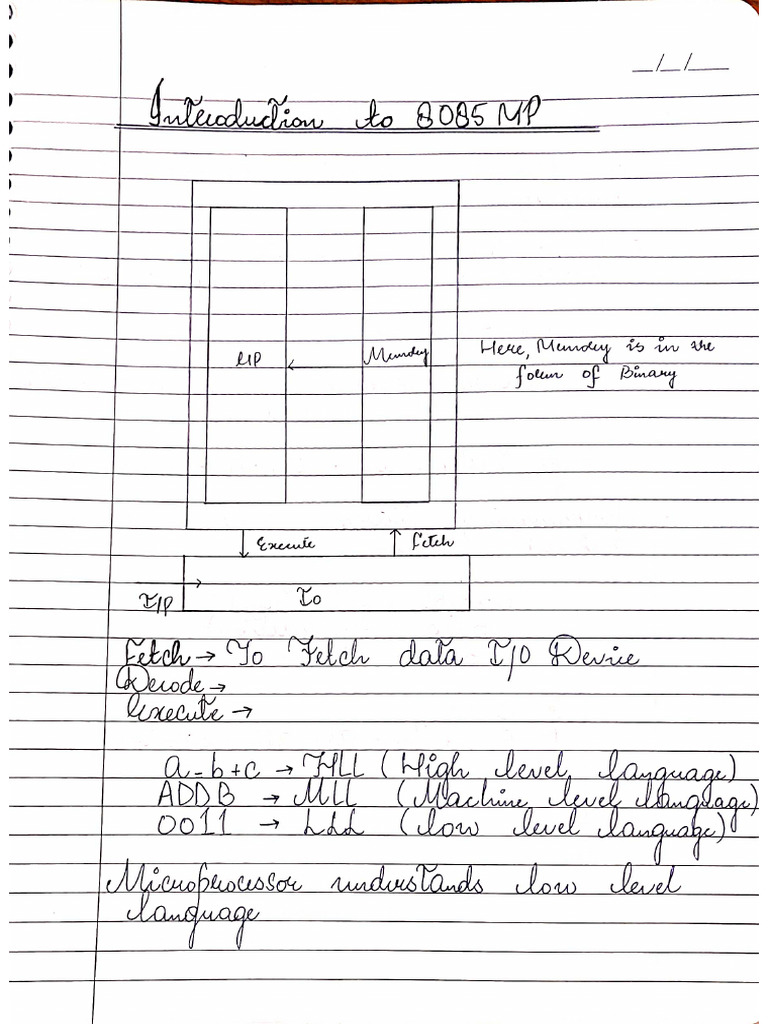 __/__/____
Introduction to 8085 MP
MP
Memory
Here, Memory is in the
form of Binary
Execute
Fetch
I/P
IO
Fetch → To Fetch data I/O Device
Decode →
Execute →
a=b+c → HLL (High level language)
ADDB → MLL (Machine level language)
0011 → LLL (low level language)
Microprocessor understands low level
language